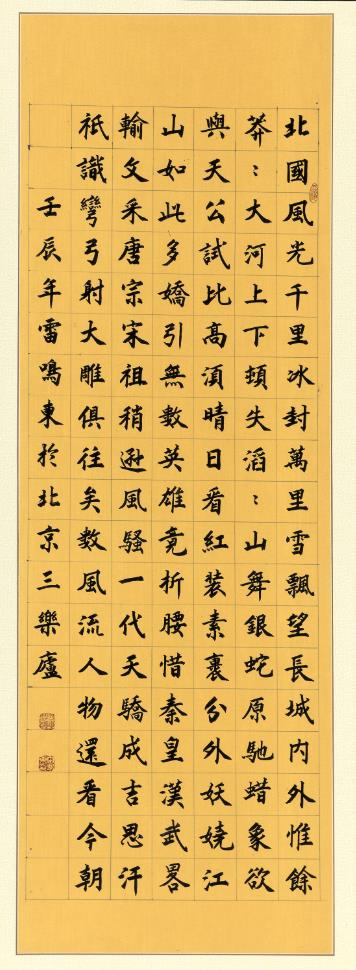 北國風光千里冰封萬里雪飄望長城内外惟餘
莽：大河上下頓失滔：山舞銀蛇原馳蜡象欲
與天公試比高湏晴日看紅裝素裹分外妖嬈江
山如此多嬌引無數英雄竟折腰惜秦皇漢武畧
輸文采唐宗宋祖稍遜風騷一代天驕成吉思汗
祇識彎弓射大雕俱往矣數風流人物還看今朝
壬辰年雷鳴東於北京三樂廬